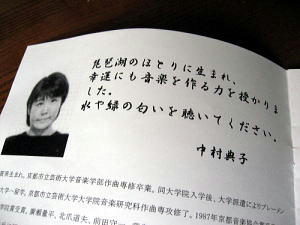 琵琶湖のほとりに生まれ、
幸運にも音楽を作る力を授かりま
した。
水や緑の匂いを聴いてください。
中村典子
賀県生まれ。京都市立芸術大学音楽学部作曲専修卒業。同大学院入学後、大学派遣によりブレーメン
大学へ留学。京都市立芸術大学大学院音楽研究科作曲専攻修了。1987年京都音楽協会賞
学院賞受賞。廣瀬量平、北爪道夫、前田守一、藤